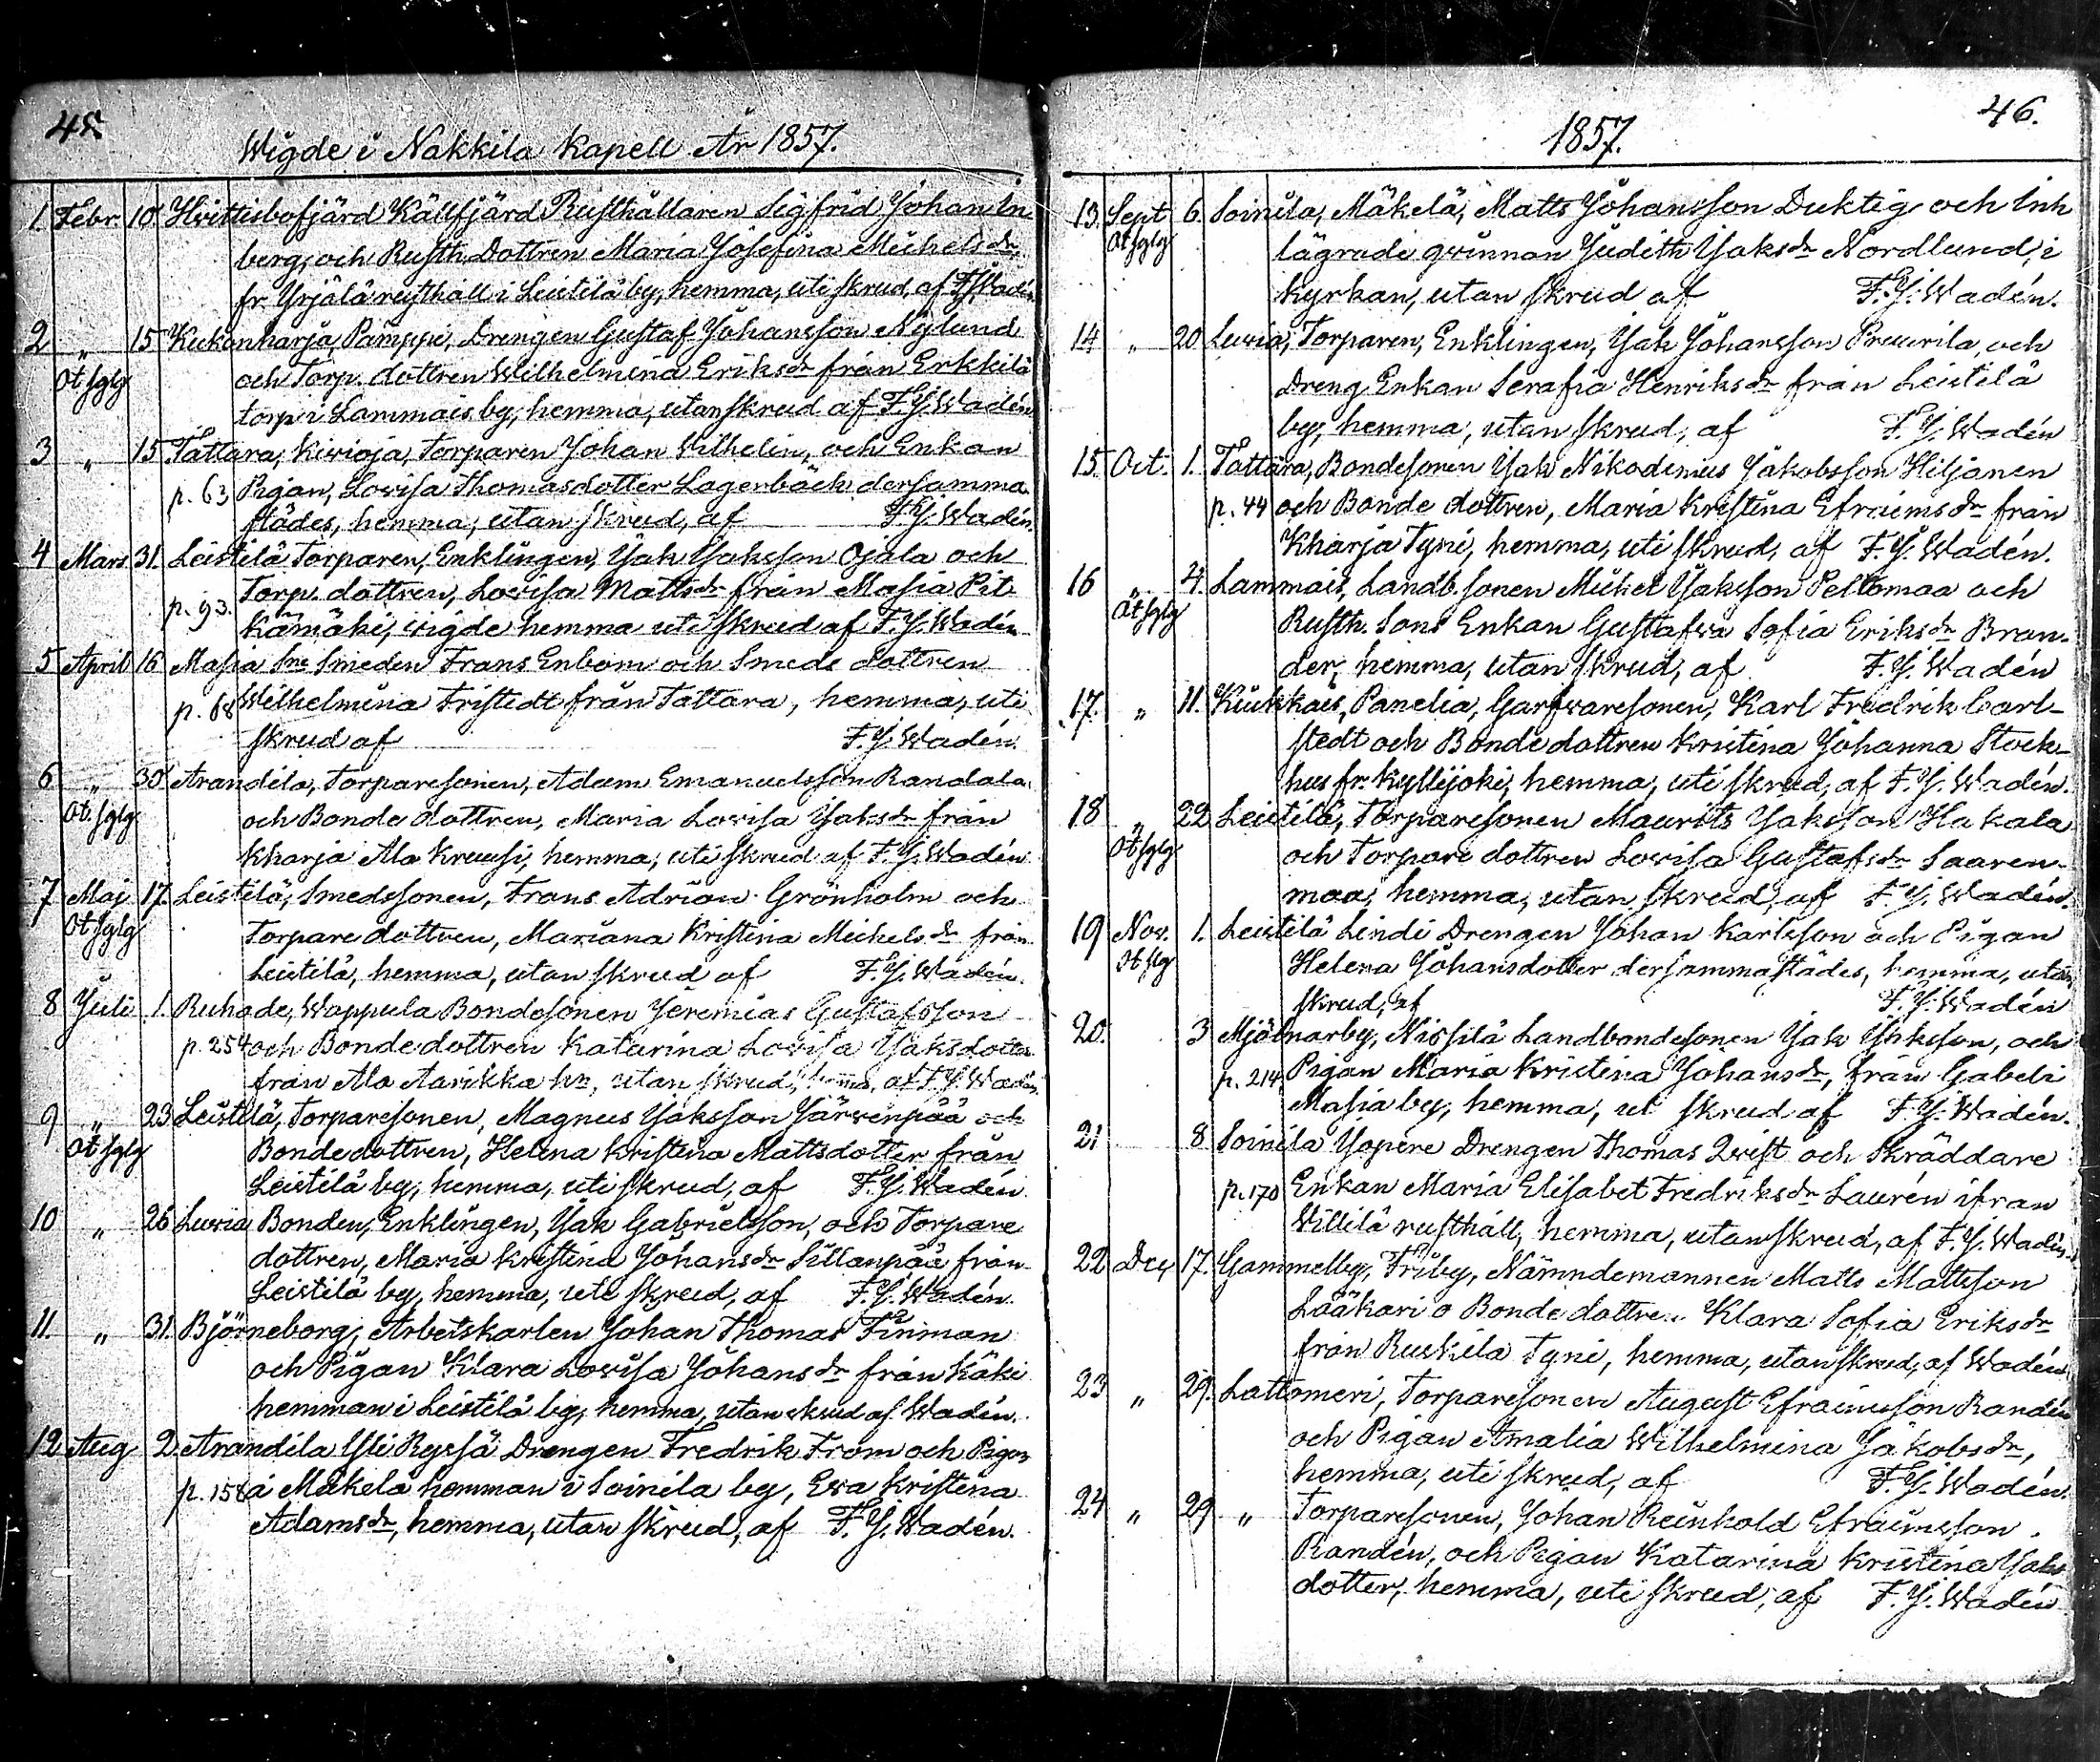 45.
Wigde i Nakkila Kapell År 1857.
1. Febr. 10. Hvittisbofjärd Källfjärd Rusthållaren Sigfrid Johan In
berg, och Rusth. Dottren Maria Josefina Michelsdr,
fr. Yrjälä rusthåll i Leistilä by, hemma, uti skrud, af F.J. Wadén
2 " 15 Kukonharja, Pamppi, Drengen Gustaf Johansson Nylund
Ot sglg och Torp. dottren Wilhelmina Eriksdr från Erkkilä
torp i Lammais by, hemma, utan skrud af F.J. Wadén
3 " 15 Tattara, Kivioja, Torparen Johan Vilhelm, och Enkan
p. 63 Pigan, Lovisa Thomasdotter Lagerbäck dersamma
städes, hemma, utan skrud, af F.J. Wadén.
4 Mars 31. Leistilä Torparen, Enklingen, Isak Isaksson Ojala och
p. 93. Torp. dottren, Lovisa Mattsdr från Masia Pit
kämäki, vigde hemma uti skrud af F.J. Wadén
5 April 16 Masia Sne Smeden Frans Enbom och Smeds dottren
p. 68 Wilhelmina Fristedt från Tattara, hemma, uti
skrud af F.J. Wadén.
6 " 30 Arandila, Torparesonen, Adam Emanuelsson Randala
Ot. sglg och Bonde dottren, Maria Lovisa Isaksdr från
Kharja Ala Krausi, hemma, uti skrud af F.J. Wadén
7 Maj 17. Leistilä, Smedssonen, Frans Adrian Grönholm och
Ot sglg Torpare dottren, Mariana Kristina Michelsdr från
Leistilä, hemma, utan skrud af F.J. Wadén.
8 Juli 1. Ruhade, Wappula Bondesonen Jeremias Gustafsson
p. 254 och Bonde dottren Katarina Lovisa Isaksdotter
från Ala Aarikka hn, utan skrud, hemma, af F.J. Wadén.
9 " 23 Leistilä, Torparesonen, Magnus Isaksson Järvenpää och
Ot sglg Bonde dottren, Helena Kristina Mattsdotter från
Leistilä by, hemma, uti skrud, af F.J. Wadén
10 " 26 Luvia Bonden, Enklingen, Isak Gabrielsson, och Torpare
dottren, Maria Kristina Johansdr Sillanpää från
Leistilä by, hemma, uti skrud, af F.J. Wadén.
11. " 31. Björneborg, Arbetskarlen Johan Thomas Finman
och Pigan Klara Lovisa Johansdr från Käki
hemman i Leistilä by, hemma, utan skrud af Wadén.
12 Aug 2. Arandila Isti Ryssä Drengen Fredrik From och Pigan
p. 158 å Mäkelä hemman i Soinila by, Eva Kristina
Adamsdr, hemma, utan skrud, af F.J. Wadén.
46.
1857.
13. Sept 6. Soinila, Mäkelä, Matts Johansson Duktig och Inh
Ot sglg lägrade qvinnan Judith Isaksdr Nordlund, i
kyrkan, utan skrud af F.J. Wadén.
14 " 20 Luvia, Torparen, Enklingen, Isak Johansson Prusila, och
Dreng Enkan Serafia Henriksdr från Leistilä
by, hemma, utan skrud, af F.J. Wadén
15. Oct. 1. Tattara, Bondesonen Isak Nikodemus Jakobsson Hiljanen
p. 44 och Bonde dottren, Maria Kristina Efraimsdr från
Kharja Tyni, hemma, uti skrud, af F.J. Wadén.
16 " 4. Lammais, Landb. sonen Michel Isaksson Peltomaa och
Ot sglg Rusth. Sons Enkan Gustafva Sofia Eriksdr Bran-
der, hemma, utan skrud, af F.J. Wadén
17. " 11. Kiukkais, Panelia, Garfvaresonen, Karl Fredrik Carl-
stedt och Bonde dottren Kristina Johanna Stock-
hus fr. Kyllijoki, hemma, uti skrud, af F.J. Wadén.
18 " 22 Leistilä, Torparesonen Maurits Isaksson Hakala
Ot sglg och Torpare dottren Lovisa Gustafsdr Saaren-
maa, hemma, utan skrud, af F.J. Wadén.
19 Nov. 1. Leistilä Lindi Drengen Johan Karlsson och Pigan
Ot slg Helena Johansdotter dersammastädes, hemma, utan
skrud, af F.J. Wadén
20. 3 Mjölnarby, Nissilä Landbondesonen Isak Isaksson, och
p. 214 Pigan Maria Kristina Johansdr, från Gabeli
Masia by, hemma, ut skrud af F.J. Wadén.
21 8 Soinila Yopere Drengen Thomas Qvist och Skräddare
p. 170 Enkan Maria Elisabet Fredriksdr Laurén ifrån
Villilä rusthåll, hemma, utan skrud, af F.J. Wadén.
22 Dec 17. Gammelby, Friby, Nämndemannen Matts Mattsson
Lääkari o Bonde dottren Klara Sofia Eriksdr
från Ruskila Tyni, hemma, utan skrud, af Wadén
23 " 29. Lattomeri, Torparesonen August Efraimsson Randén
och Pigan Amalia Wilhelmina Jakobsdr,
hemma, uti skrud, af F.J. Wadén.
24 " 29 " Torparesonen, Johan Reinhold Efraimsson
Randén, och Pigan Katarina Kristina Isaks
dotter, hemma, uti skrud, af F.J. Wadén